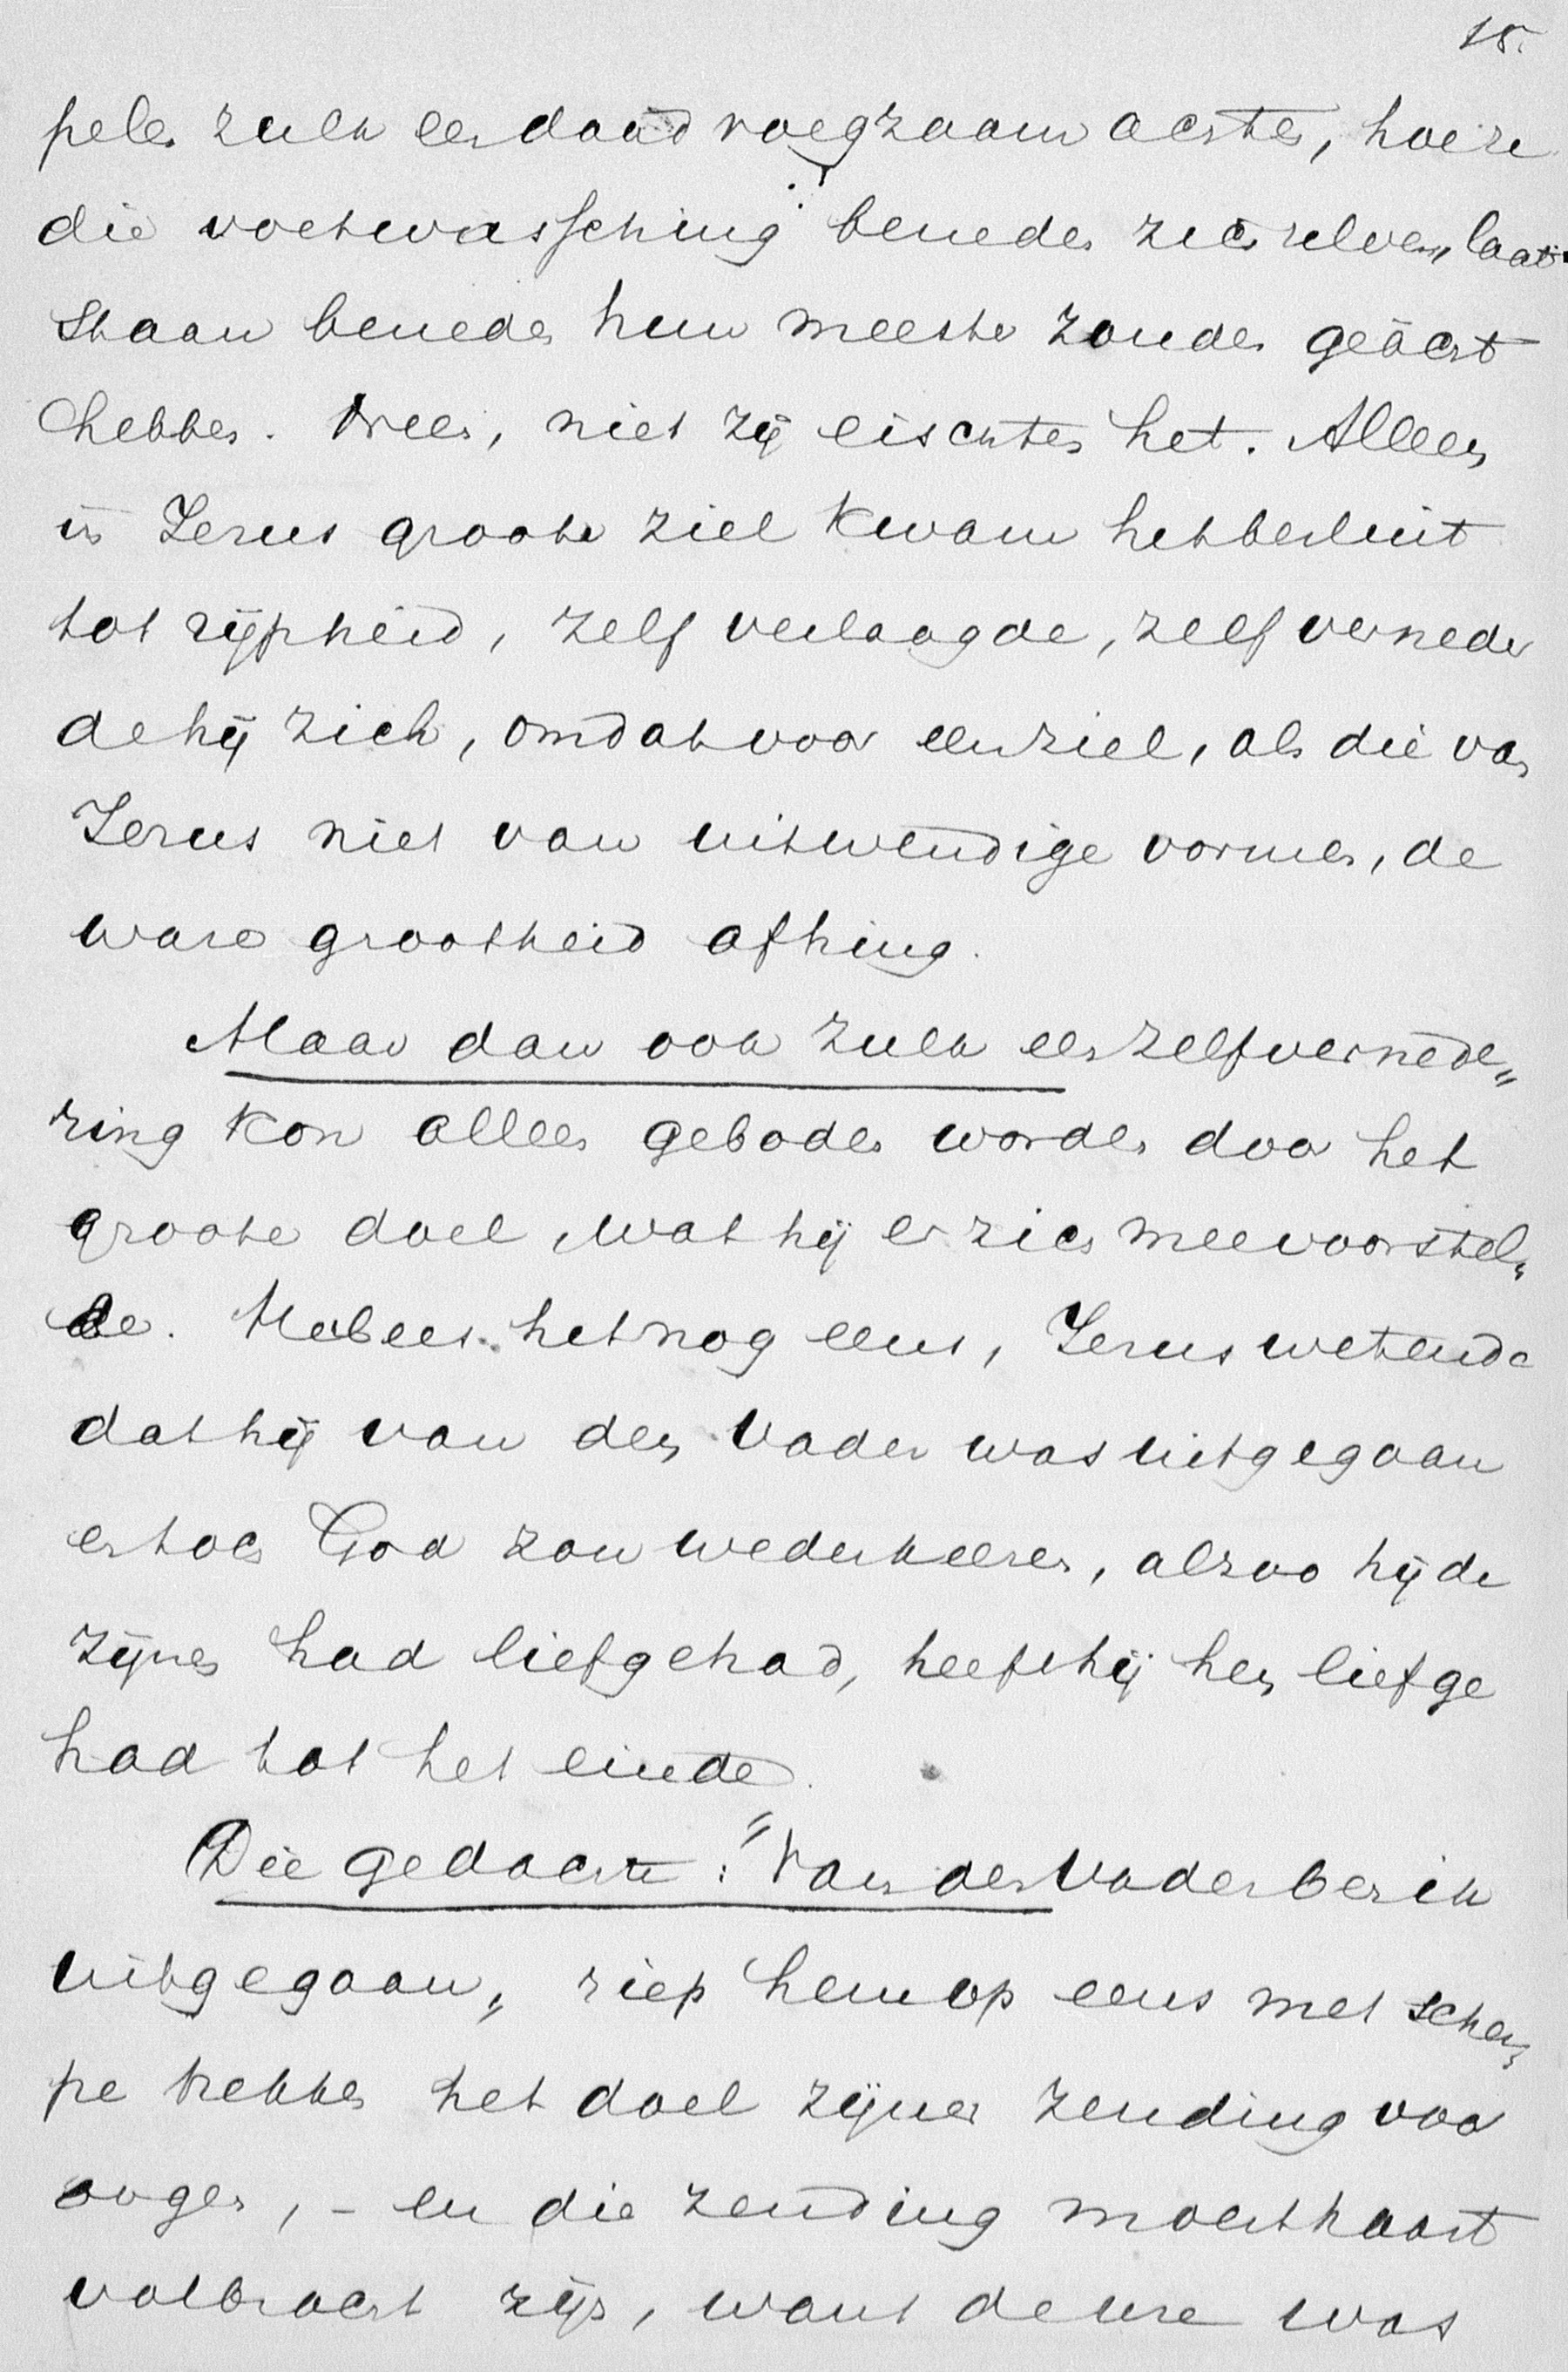 18.
pelen zulk een daad voegzaam achten, hoe ze
die voetwassching beneden zich zelven, laat
staan beneden hun meester zouden geächt
hebben. Neen, niet zij eischten het. Alleen
in Jezus groote ziel kwam het besluit
tot rijpheid, zelf verlaagde, zelf verneder
de hij zich, omdat voor een ziel, als die van
Jezus niet van uitwendige vormen, de
ware grootheid afhing.
Maar dan ook zulk een zelfvernede„
ring kon alleen geboden worden door het
groote doel, wat hij er zich mee voorstel„
de. Herlees het nog eens, Jezus wetende
dat hij van den Vader was uitgegaan
en tot God zou wederkeeren, alzoo hij de
zijnen had liefgehad, heeft hij hen liefge
had tot het einde.
Die gedachte: "Van den Vader ben ik
uitgegaan„ riep hem op eens met scher„
pe trekken het doel zijner zending voor
oogen, – en die zending moest haast
volbracht zijn, want de ure was